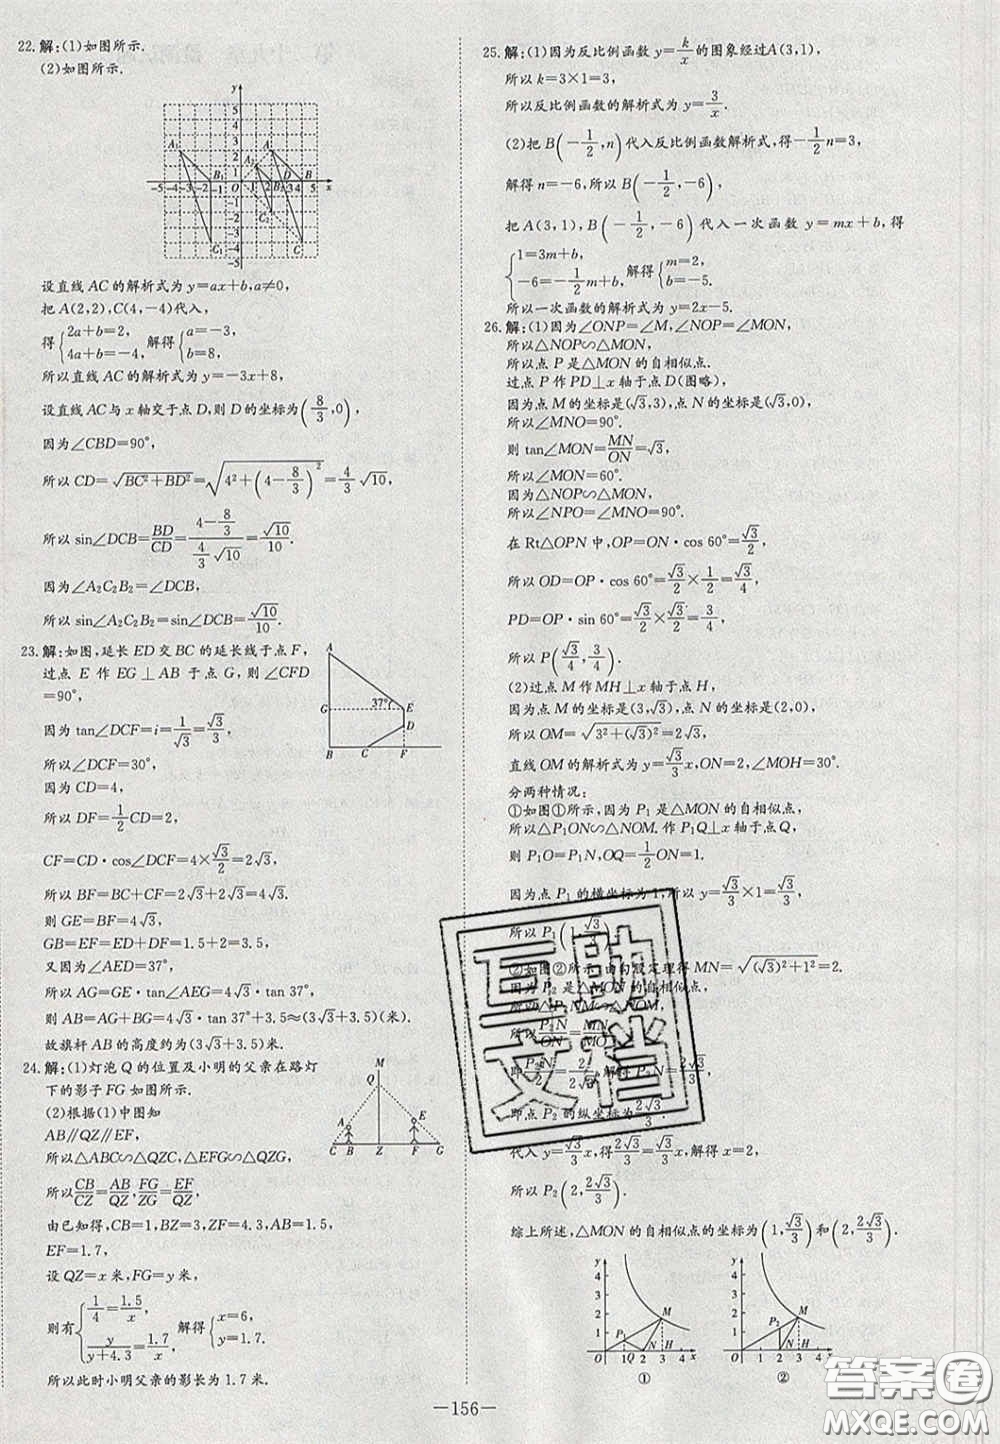 22.解:(1)如图所示.
(2)如图所示.
设直线AC的解析式为y=ax+b,a≠0,
把A(2,2),C(4,-4)代入,
得{2a+b=2, 4a+b=-4, 解得{a=-3, b=8,
所以直线AC的解析式为y=-3x+8,
设直线AC与x轴交于点D,则D的坐标为(8/3,0),
因为∠CBD=90°,
所以CD=√(BC²+BD²)=√(4²+(4-8/3)²)=4/3√10
所以sin∠DCB=BD/CD=(4-8/3)/(4/3√10)=√10/10.
因为∠A₂C₂B₂=∠DCB,
所以sin∠A₂C₂B₂=sin∠DCB=√10/10.
23.解:如图,延长ED交BC的延长线于点F,
过点E作EG⊥AB于点G,则∠CFD
=90°,
因为tan∠DCF=i=1/√3=√3/3,
所以∠DCF=30°,
因为CD=4,
所以DF=1/2CD=2,
CF=CD·cos∠DCF=4×√3/2=2√3,
所以BF=BC+CF=2√3+2√3=4√3.
则GE=BF=4√3,
GB=EF=ED+DF=1.5+2=3.5,
又因为∠AED=37°,
所以AG=GE·tan∠AEG=4√3·tan 37°,
则AB=AG+BG=4√3·tan 37°+3.5≈(3√3+3.5)(米).
故旗杆AB的高度约为(3√3+3.5)米.
24.解:(1)灯泡Q的位置及小明的父亲在路灯
下的影子FG如图所示.
(2)根据(1)中图知
AB∥QZ∥EF,
所以△ABC∽△QZC,△EFG∽△QZG,
所以CB/CZ=AB/QZ,FG/ZG=EF/QZ
由已知得,CB=1,BZ=3,ZF=4.3,AB=1.5,
EF=1.7,
设QZ=x米,FG=y米,
则有{1/4=1.5/x, y/(y+4.3)=1.7/x, 解得{x=6, y=1.7.
所以此时小明父亲的影长为1.7米.
25.解:(1)因为反比例函数y=k/x的图象经过A(3,1),
所以k=3×1=3,
所以反比例函数的解析式为y=3/x.
(2)把B(-1/2,n)代入反比例函数解析式,得-1/2n=3,
解得n=-6,所以B(-1/2,-6),
把A(3,1),B(-1/2,-6)代入一次函数y=mx+b,得
{1=3m+b, -6=-1/2m+b, 解得{m=2, b=-5.
所以一次函数的解析式为y=2x-5.
26.解:(1)因为∠ONP=∠M,∠NOP=∠MON,
所以△NOP∽△MON,
所以点P是△MON的自相似点.
过点P作PD⊥x轴于点D(图略),
因为点M的坐标是(√3,3),点N的坐标是(√3,0),
所以∠MNO=90°.
则tan∠MON=MN/ON=√3,
所以∠MON=60°.
因为△NOP∽△MON,
所以∠NPO=∠MNO=90°.
在Rt△OPN中,OP=ON·cos 60°=√3/2,
所以OD=OP·cos 60°=√3/2×1/2=√3/4,
PD=OP·sin 60°=√3/2×√3/2=3/4,
所以P(√3/4,3/4).
(2)过点M作MH⊥x轴于点H,
因为点M的坐标是(3,√3),点N的坐标是(2,0),
所以OM=√(3²+(√3)²)=2√3,
直线OM的解析式为y=√3/3x,ON=2,∠MOH=30°.
分两种情况:
①如图①所示,因为P₁是△MON的自相似点,
所以△P₁ON∽△NOM.作P₁Q⊥x轴于点Q,
则P₁O=P₁N,OQ=1/2ON=1.
因为点P₁的横坐标为1,所以y=√3/3×1=√3/3,
所以P₁(1,√3/3).
②如图②所示,由勾股定理得MN=√((√3)²+1²)=2.
因为P₂是△MON的自相似点,
所以△P₂NM∽△NOM,
所以P₂N/ON=MN/MO,
即P₂N/2=2/2√3,解得P₂N=2√3/3,
即点P₂的纵坐标为2√3/3.
代入y=√3/3x,得2√3/3=√3/3x,解得x=2,
所以P₂(2,2√3/3).
综上所述,△MON的自相似点的坐标为(1,√3/3)和(2,2√3/3).
① ②
—156—
互助文档
答案圈
MXQE.COM